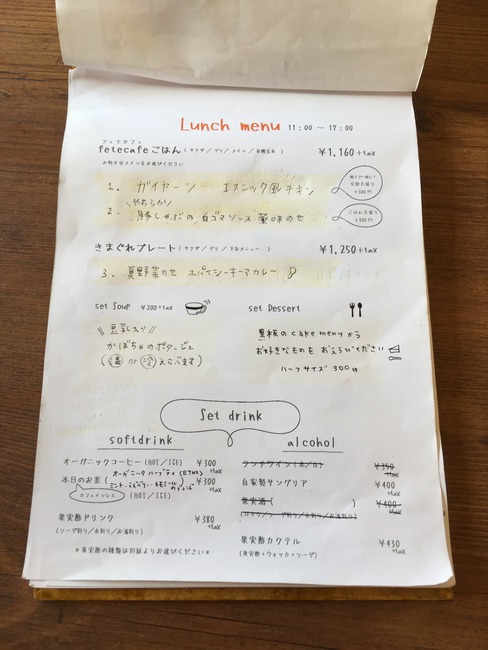 Lunch menu 11:00 ～ 17:00
フェテカフェ
fetecafe ごはん (サラダ / デリ / メイン / 有機玄米 ) ¥1,160 +tax
お好きなメインをお選びください
1. ガイヤーン エスニック風チキン
やわらかい
2. 豚しゃぶの 白ゴマソース 薬味のせ
全部大盛り
+300円
ごはん大盛り
きまぐれプレート (サラダ / デリ / メニュー ) ¥1,250 +tax
3. 夏野菜のせ スパイシーキーマカレー
set Soup ¥200 +tax
豆乳入り
かぼちゃのポタージュ
(温 or 冷 えらべます)
set Dessert
黒板の cake menu から
お好きなものを おえらびください
ハーフサイズ 300円
Set drink
softdrink
オーガニックコーヒー (HOT / ICE) ¥300 +tax
オーガニック ハーブティ
本日のお茶 (ミント・ ¥300 +tax
カフェインレス (HOT / ICE)
果実酢ドリンク ¥380 +tax
(ソーダ割り / 水割り / お湯割り)
＊果実酢の種類は別紙よりお選びください＊
alcohol
ランチワイン (赤/白) ¥350 +tax
自家製サングリア ¥400 +tax
果実酒 ( ) ¥400 +tax
(ロック / ソーダ割り / 水割り / お湯割り)
果実酢カクテル ¥430 +tax
(果実酢+ウォッカ+ソーダ)